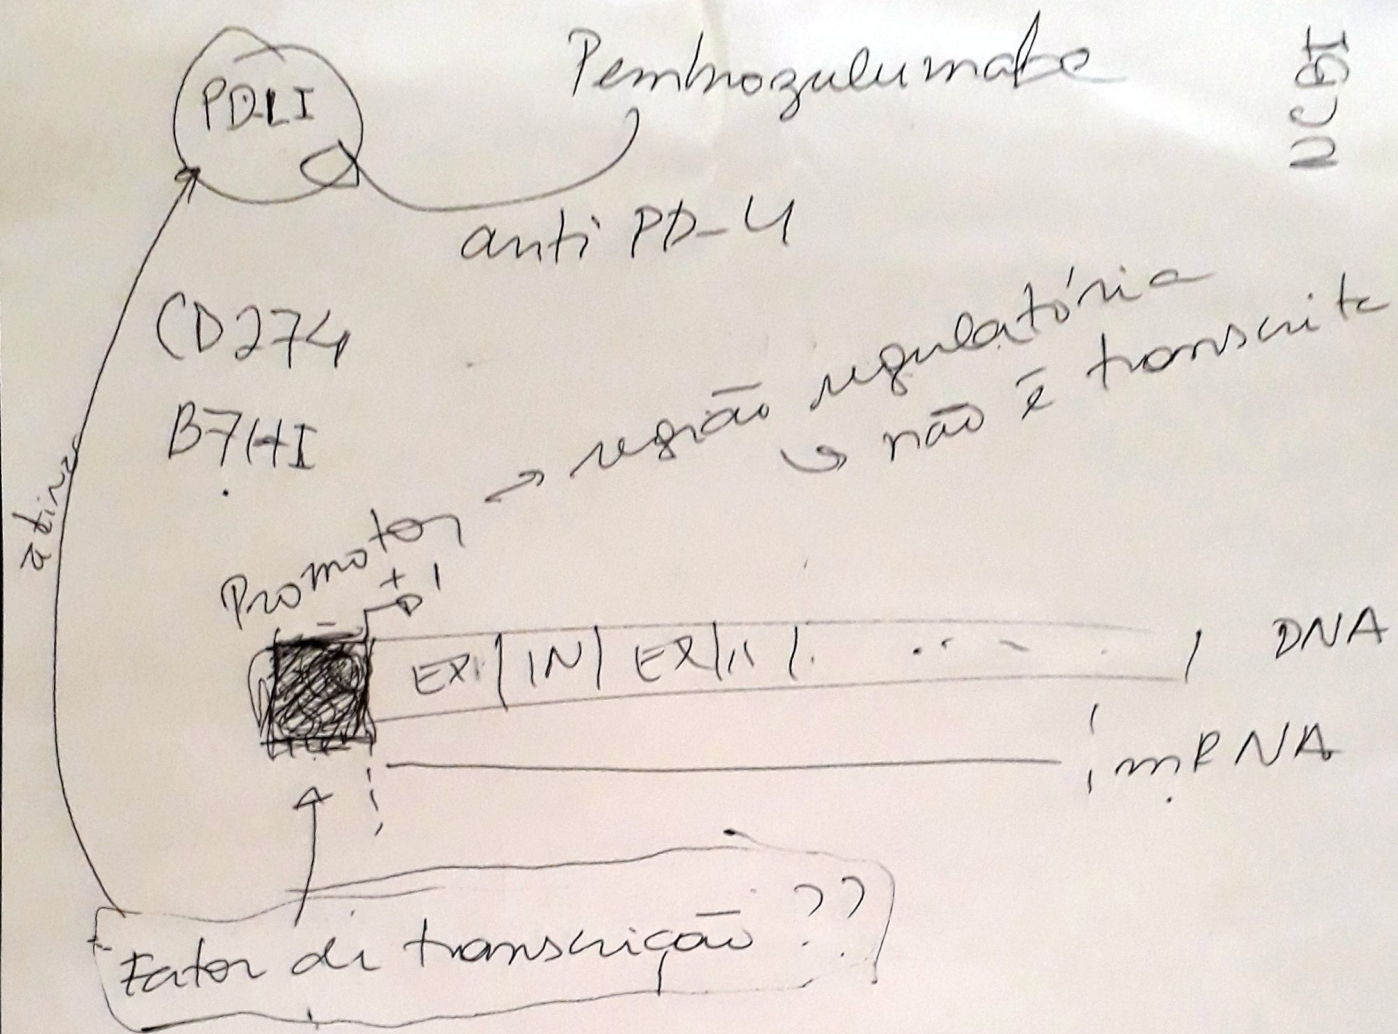 PD-L1
Pembrozulumabe
NCBI
anti PD-L1
CD274
B7H1
ativa
Promotor → região regulatória
↳ não é transcrita
+1
EX1 | IN | EX | 11 | . . . . DNA
mRNA
Fator de transcrição ??